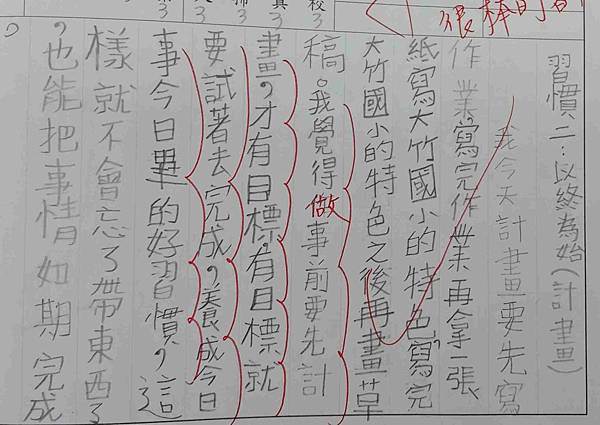 習慣二:以終為始(計畫)
我今天計畫要先寫
作業,寫完作業再拿一張
紙寫大竹國小的特色,寫完
大竹國小的特色之後再畫草
稿。我覺得做事前要先計
畫,才有目標。有目標就
要試著去完成,養成今日
事今日畢的好習慣,這
樣就不會忘了帶東西了
,也能把事情如期完成
。
很棒的